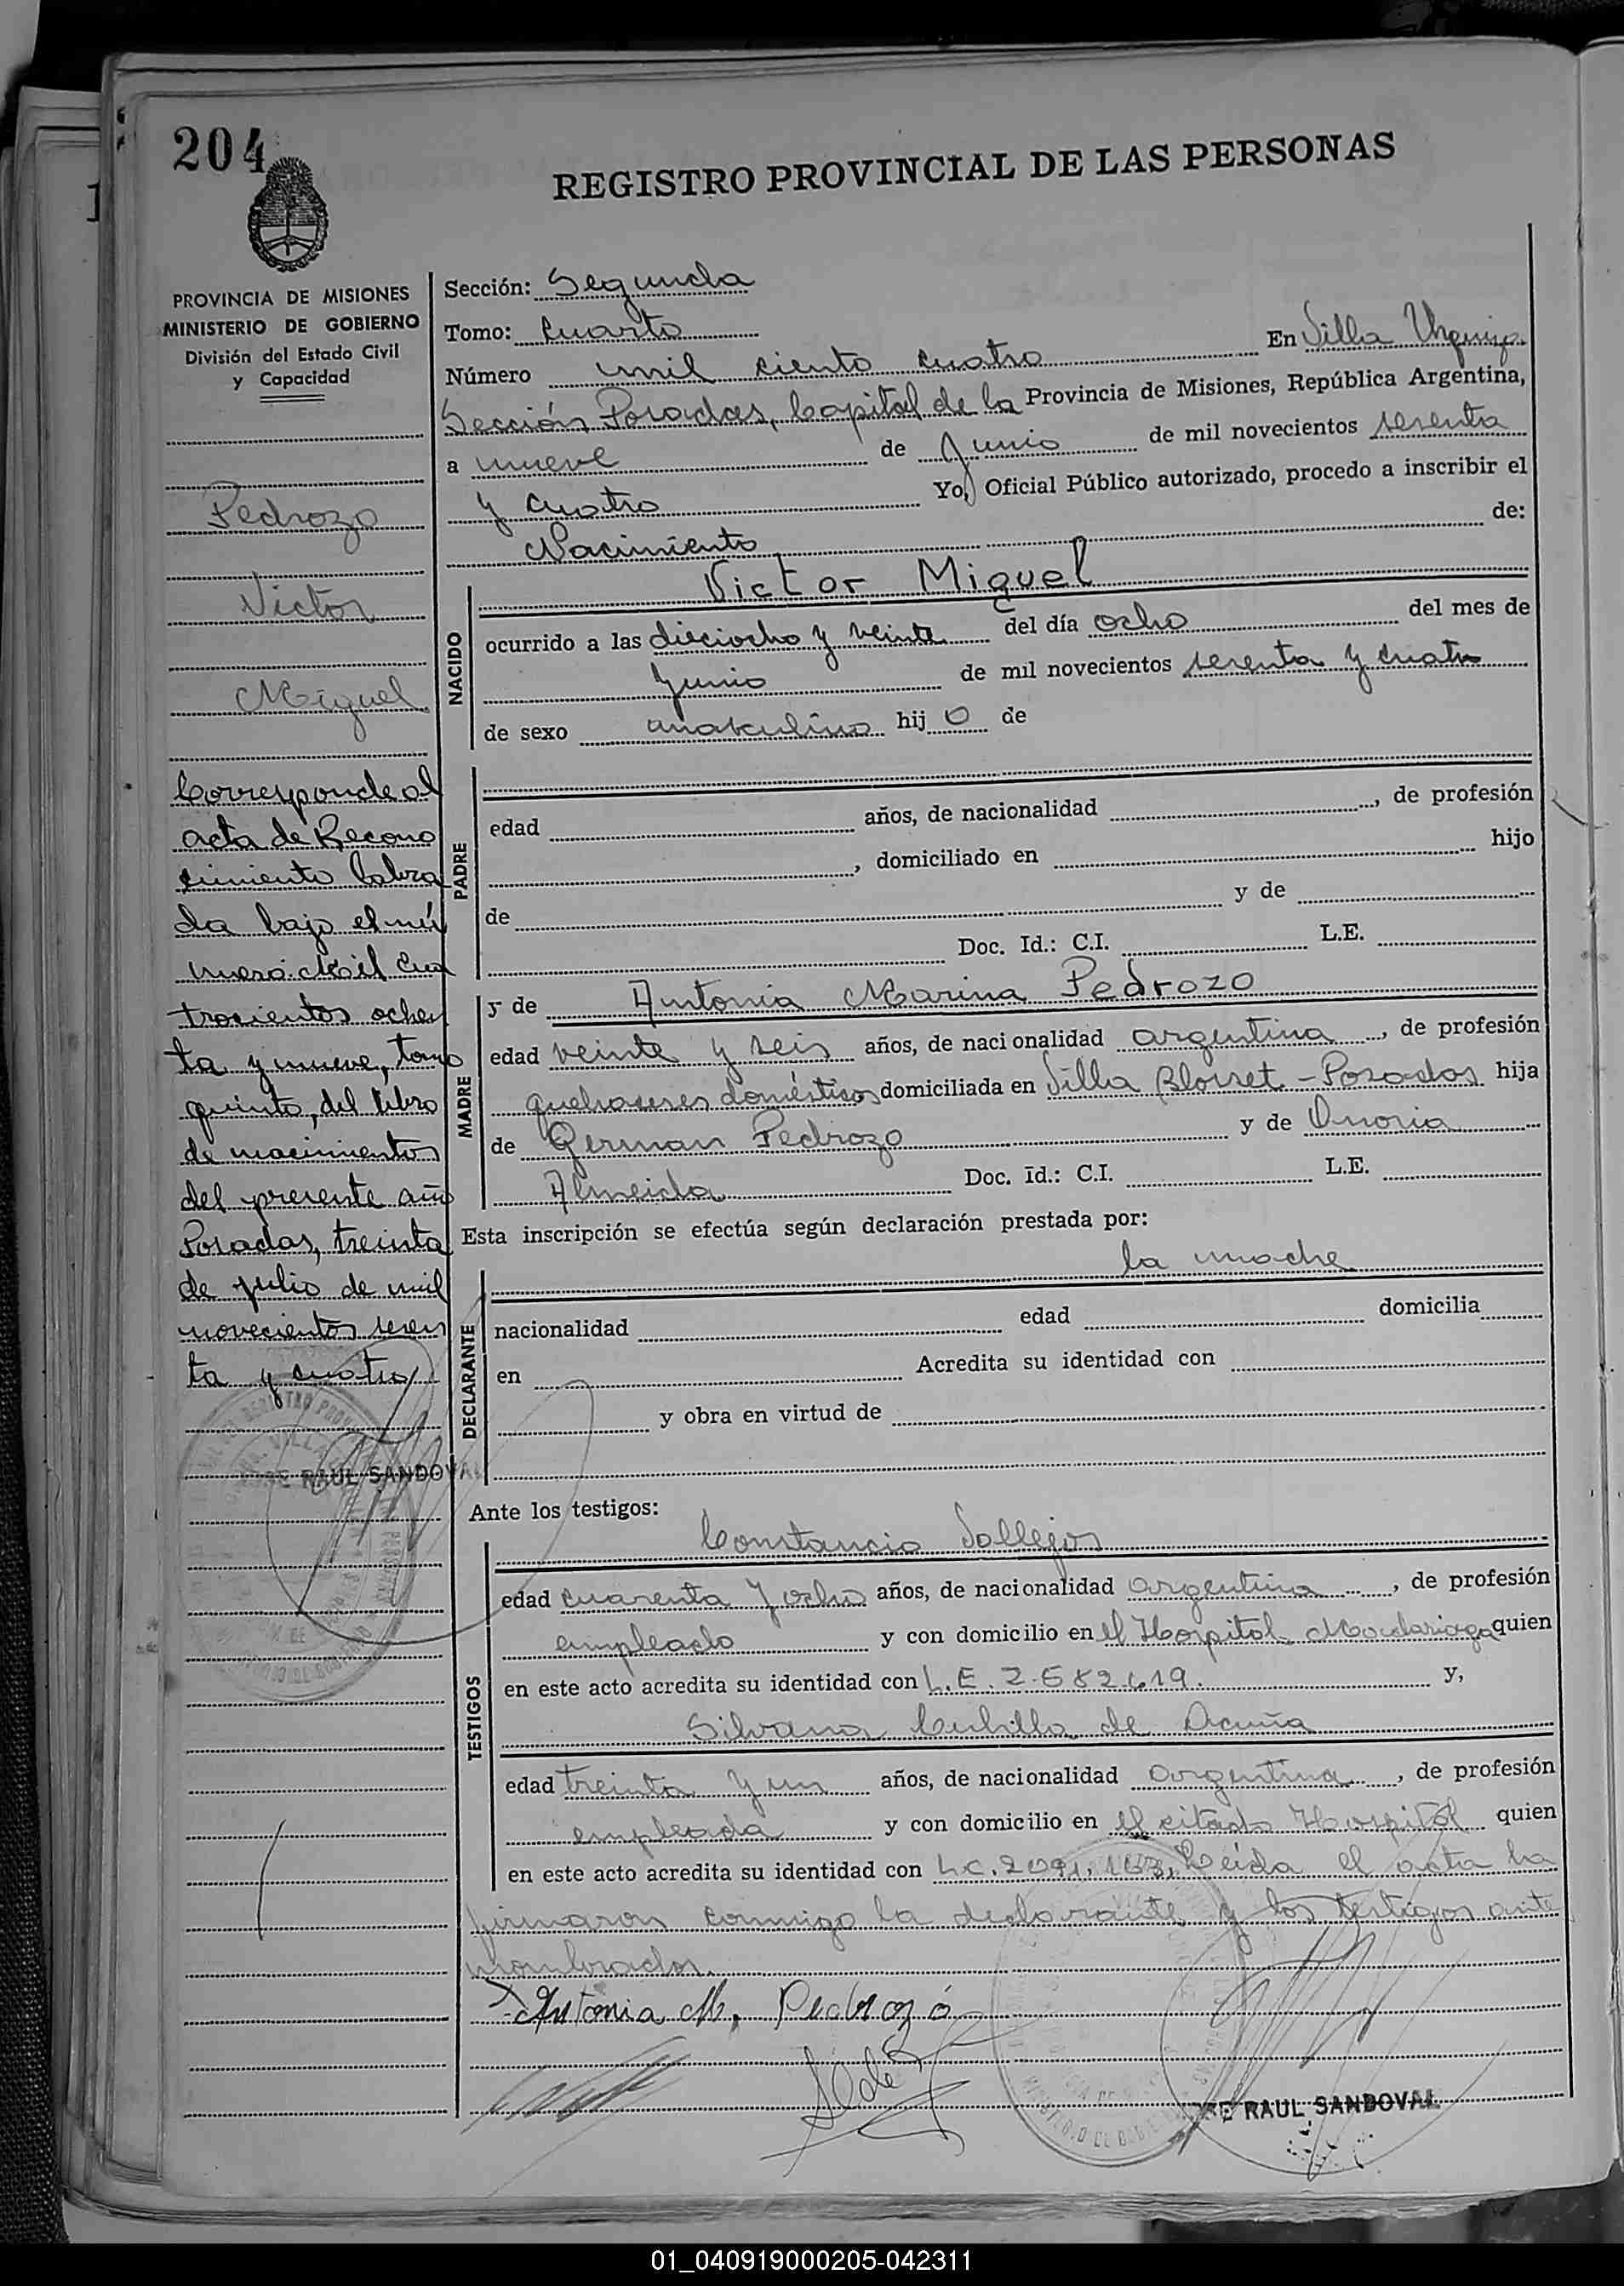 204
REGISTRO PROVINCIAL DE LAS PERSONAS
PROVINCIA DE MISIONES
MINISTERIO DE GOBIERNO
División del Estado Civil
y Capacidad
Pedrozo
Victor
Miguel
Corresponde al
acta de Recono
cimiento labra
da bajo el nú
mero: Mil cua
trocientos ochen
ta y nueve, tomo
quinto, del libro
de nacimientos
del presente año
Posadas, treinta
de julio de mil
novecientos seten
ta y cuatro
RAUL SANDOVAL
Sección: Segunda
Tomo: Cuarto
Número mil ciento cuatro En Villa Urquiza
Sección Posadas, Capital de la Provincia de Misiones, República Argentina,
a nueve de Junio de mil novecientos setenta
y cuatro Yo, Oficial Público autorizado, procedo a inscribir el
Nacimiento de:
NACIDO
Victor Miguel
ocurrido a las dieciocho y veinte del día ocho del mes de
Junio de mil novecientos setenta y cuatro
de sexo masculino hijo de
PADRE
edad años, de nacionalidad , de profesión
, domiciliado en hijo
de y de
Doc. Id.: C.I. L.E.
MADRE
y de Antonia Marina Pedrozo
edad veinte y seis años, de nacionalidad argentina , de profesión
quehaceres domésticos domiciliada en Villa Blosset - Posadas hija
de German Pedrozo y de Onoria
Almeida Doc. Id.: C.I. L.E.
Esta inscripción se efectúa según declaración prestada por:
DECLARANTE
la madre
nacionalidad edad domicilia
en Acredita su identidad con
y obra en virtud de
Ante los testigos:
TESTIGOS
Constancio Vallejos
edad cuarenta y ocho años, de nacionalidad argentina , de profesión
empleado y con domicilio en el Hospital Madariaga quien
en este acto acredita su identidad con L.E. 2.582.619. y,
Silvana Cubilla de Acuña
edad treinta y un años, de nacionalidad argentina , de profesión
empleada y con domicilio en el citado Hospital quien
en este acto acredita su identidad con L.C. Leída el acta la
firmaron conmigo la declarante y los testigos ante
nombrados.
Antonia M. Pedrozo
RAUL SANDOVAL
01_040919000205-042311